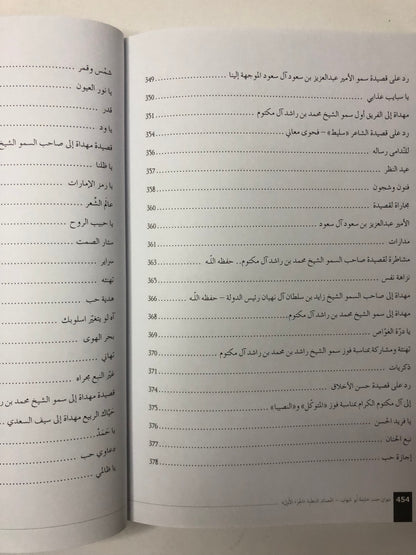 رد على قصيدة سمو الأمير عبدالعزيز بن سعود آل سعود الموجهة إلينا 349
يا سبايب عذابي 350
مهداة إلى الفريق أول سمو الشيخ محمد بن راشد آل مكتوم 351
رد على قصيدة الشاعر «سليط» – فحوى معاني 354
للنّدامى رساله 356
عيد النظر 357
فنون وشجون 358
مجاراة لقصيدة 360
الأمير عبدالعزيز بن سعود آل سعود 360
مدارات 361
مشاطرة لقصيدة صاحب السمو الشيخ محمد بن راشد آل مكتوم.. حفظه الله 363
نزاهة نفس 365
مهداة إلى صاحب السمو الشيخ زايد بن سلطان آل نهيان رئيس الدولة – حفظه الله 366
مهداة إلى سمو الشيخ محمد بن راشد آل مكتوم 367
يا درّة الغوّاص 369
تهنئة ومشاركة بمناسبة فوز سمو الشيخ راشد بن محمد بن راشد آل مكتوم 370
ذكريات 371
رد على قصيدة حسن الأخلاق 374
إلى آل مكتوم الكرام بمناسبة فوز «المتوكّل» و«النصيبا» 375
يا فريد الحسن 376
نبع الحنان 377
إجازة حب 378
454
شمس وقمر
يا نور العيون
قدر
يا ود
قصيدة مهداة إلى صاحب السمو الشيخ
يا ظلنا
يا رمز الإمارات
عالم الشّعر
يا حبيب الروح
ستار الصمت
سراير
تهنئه
هدية حب
آدلو بتغيّر اسلوبك
بحر الهوى
تهاني
غيّر النبع مجراه
قصيدة مهداة إلى سمو الشيخ محمد بن
حيّاك الربيع مهداة إلى سيف السعدي
يا حَمَد
دعاوي حب
يا ظالمي